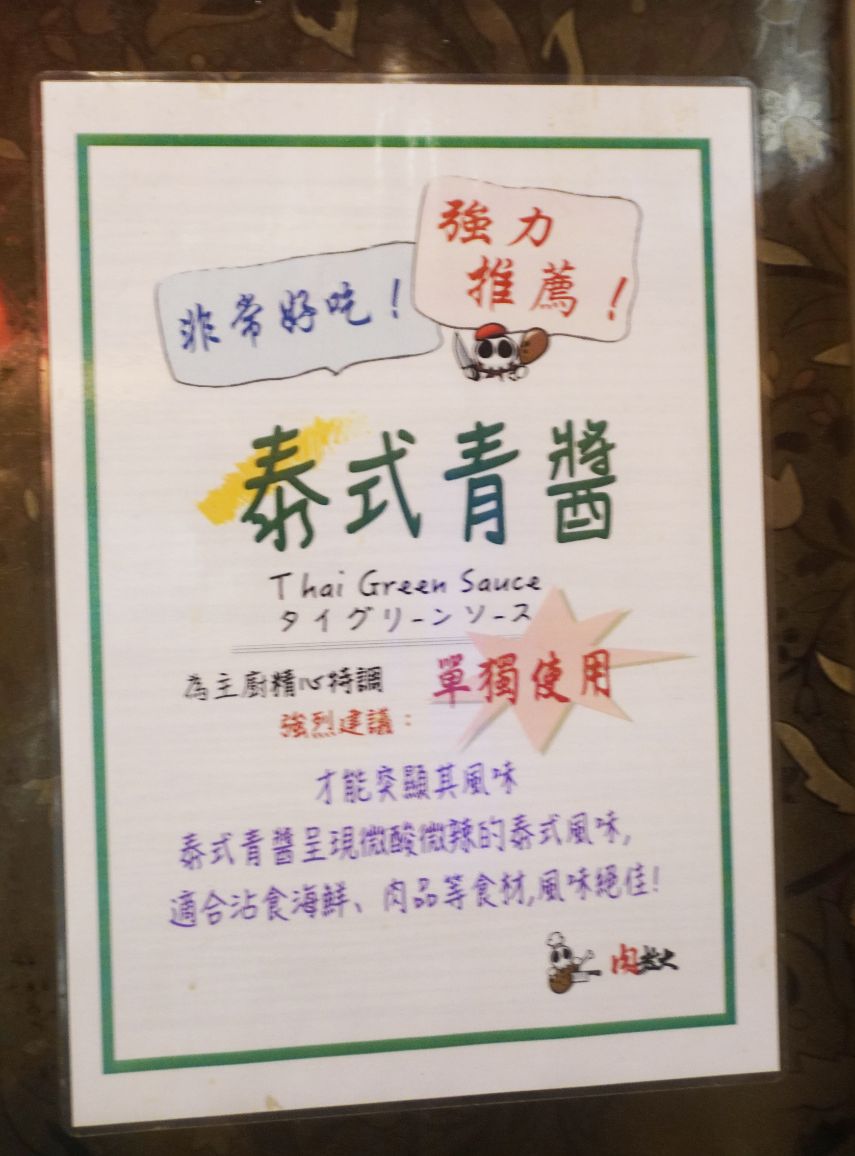 非常好吃！
強力
推薦！
泰式青醬
Thai Green Sauce
タイグリーンソース
為主廚精心特調
單獨使用
強烈建議：
才能突顯其風味
泰式青醬呈現微酸微辣的泰式風味,
適合沾食海鮮、肉品等食材,風味絕佳!